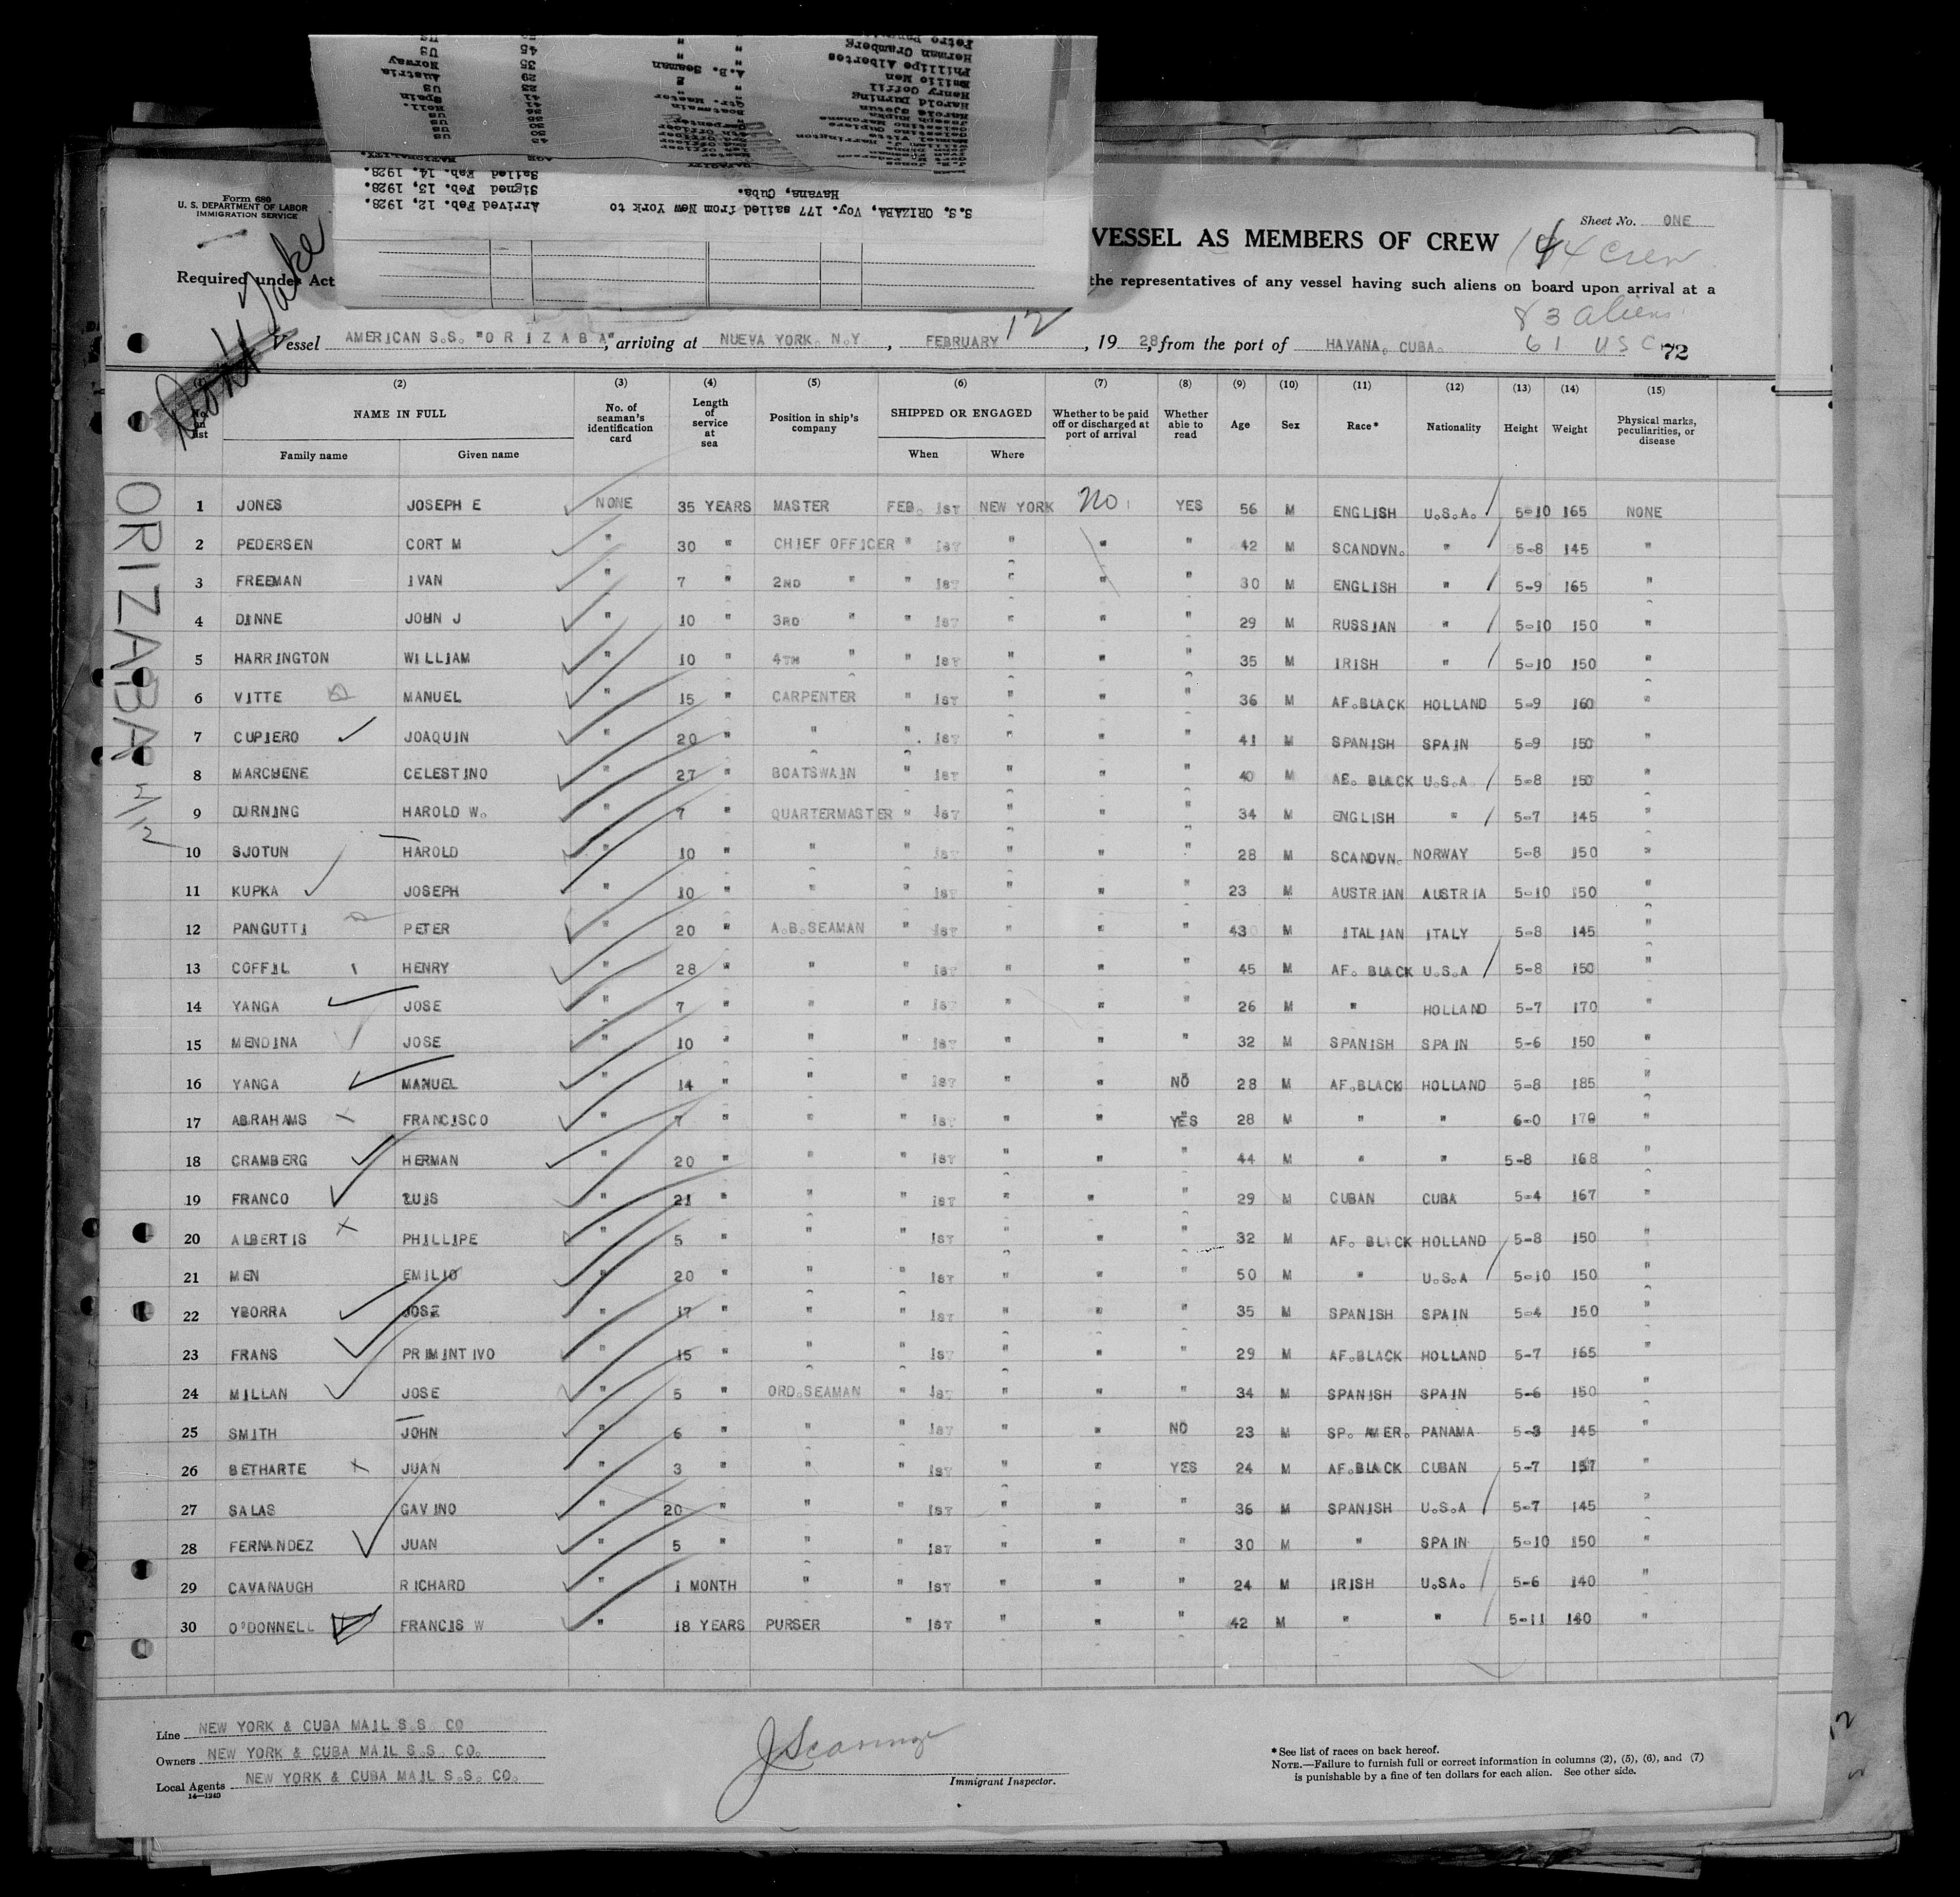 Petro
Herman Cramberg " " 45 US
Phillipe Albertes " " 35 Norway
Emilio Men A.B. Seaman 29 Austria
Henry Coffil " 23 US
Harold Durning Qtr. Master 41 Spain
S.S. ORIZABA, Voy. 177 sailed from New York to
Havana, Cuba.
Arrived Feb. 12, 1928.
Signed Feb. 13, 1928.
Sailed Feb. 14, 1928.
Form 680
U. S. DEPARTMENT OF LABOR
IMMIGRATION SERVICE
Sheet No. ONE
VESSEL AS MEMBERS OF CREW 144 crew
Required under Act
the representatives of any vessel having such aliens on board upon arrival at a
83 aliens
61 USC
72
Vessel AMERICAN S.S. "O R I Z A B A", arriving at NUEVA YORK. N.Y., FEBRUARY 12, 1928, from the port of HAVANA. CUBA.
Don't Take
ORIZABA 2/12
(1) (2) (3) (4) (5) (6) (7) (8) (9) (10) (11) (12) (13) (14) (15)
No. on list NAME IN FULL Family name Given name No. of seaman's identification card Length of service at sea Position in ship's company SHIPPED OR ENGAGED When Where Whether to be paid off or discharged at port of arrival Whether able to read Age Sex Race* Nationality Height Weight Physical marks, peculiarities, or disease
1 JONES JOSEPH E NONE 35 YEARS MASTER FEB. 1ST NEW YORK No YES 56 M ENGLISH U.S.A. 5-10 165 NONE
2 PEDERSEN CORT M " 30 " CHIEF OFFICER " 1ST " " " 42 M SCANDVN. " 5-8 145 "
3 FREEMAN IVAN " 7 " 2ND " " 1ST " " " 30 M ENGLISH " 5-9 165 "
4 DINNE JOHN J " 10 " 3RD " " 1ST " " " 29 M RUSSIAN " 5-10 150 "
5 HARRINGTON WILLIAM " 10 " 4TH " " 1ST " " " 35 M IRISH " 5-10 150 "
6 VITTE MANUEL " 15 " CARPENTER " 1ST " " " 36 M AF.BLACK HOLLAND 5-9 160 "
7 CUPIERO JOAQUIN " 20 " " " 1ST " " " 41 M SPANISH SPAIN 5-9 150 "
8 MARCHENE CELESTINO " 27 " BOATSWAIN " 1ST " " " 40 M AF. BLACK U.S.A 5-8 150 "
9 DURNING HAROLD W. " 7 " QUARTERMASTER " 1ST " " " 34 M ENGLISH " 5-7 145 "
10 SJOTUN HAROLD " 10 " " " 1ST " " " 28 M SCANDVN. NORWAY 5-8 150 "
11 KUPKA JOSEPH " 10 " " " 1ST " " " 23 M AUSTRIAN AUSTRIA 5-10 150 "
12 PANGUTTI PETER " 20 " A.B.SEAMAN " 1ST " " " 43 M ITALIAN ITALY 5-8 145 "
13 COFFIL HENRY " 28 " " " 1ST " " " 45 M AF. BLACK U.S.A 5-8 150 "
14 YANGA JOSE " 7 " " " 1ST " " " 26 M " HOLLAND 5-7 170 "
15 MENDINA JOSE " 10 " " " 1ST " " " 32 M SPANISH SPAIN 5-6 150 "
16 YANGA MANUEL " 14 " " " 1ST " " NO 28 M AF.BLACK HOLLAND 5-8 185 "
17 ABRAHAMS FRANCISCO " 7 " " " 1ST " " YES 28 M " " 6-0 170 "
18 CRAMBERG HERMAN " 20 " " " 1ST " " " 44 M " " 5-8 168 "
19 FRANCO LUIS " 21 " " " 1ST " " " 29 M CUBAN CUBA 5-4 167 "
20 ALBERTIS PHILLIPE " 5 " " " 1ST " " " 32 M AF. BLACK HOLLAND 5-8 150 "
21 MEN EMILIO " 20 " " " 1ST " " " 50 M " U.S.A 5-10 150 "
22 YBORRA JOSE " 17 " " " 1ST " " " 35 M SPANISH SPAIN 5-4 150 "
23 FRANS PRIMINTIVO " 15 " " " 1ST " " " 29 M AF.BLACK HOLLAND 5-7 165 "
24 MILLAN JOSE " 5 " ORD.SEAMAN " 1ST " " " 34 M SPANISH SPAIN 5-6 150 "
25 SMITH JOHN " 6 " " " 1ST " " NO 23 M SP. AMER. PANAMA 5-3 145 "
26 BETHARTE JUAN " 3 " " " 1ST " " YES 24 M AF.BLACK CUBAN 5-7 157 "
27 SALAS GAVINO " 20 " " " 1ST " " " 36 M SPANISH U.S.A 5-7 145 "
28 FERNANDEZ JUAN " 5 " " " 1ST " " " 30 M " SPAIN 5-10 150 "
29 CAVANAUGH RICHARD " 1 MONTH " " 1ST " " " 24 M IRISH U.SA. 5-6 140 "
30 O'DONNELL FRANCIS W " 18 YEARS PURSER " 1ST " " " 42 M " " 5-11 140 "
Line NEW YORK & CUBA MAIL S.S. CO
Owners NEW YORK & CUBA MAIL S.S. CO.
Local Agents NEW YORK & CUBA MAIL S.S. CO.
14—1240
Immigrant Inspector.
*See list of races on back hereof.
NOTE.—Failure to furnish full or correct information in columns (2), (5), (6), and (7)
is punishable by a fine of ten dollars for each alien. See other side.